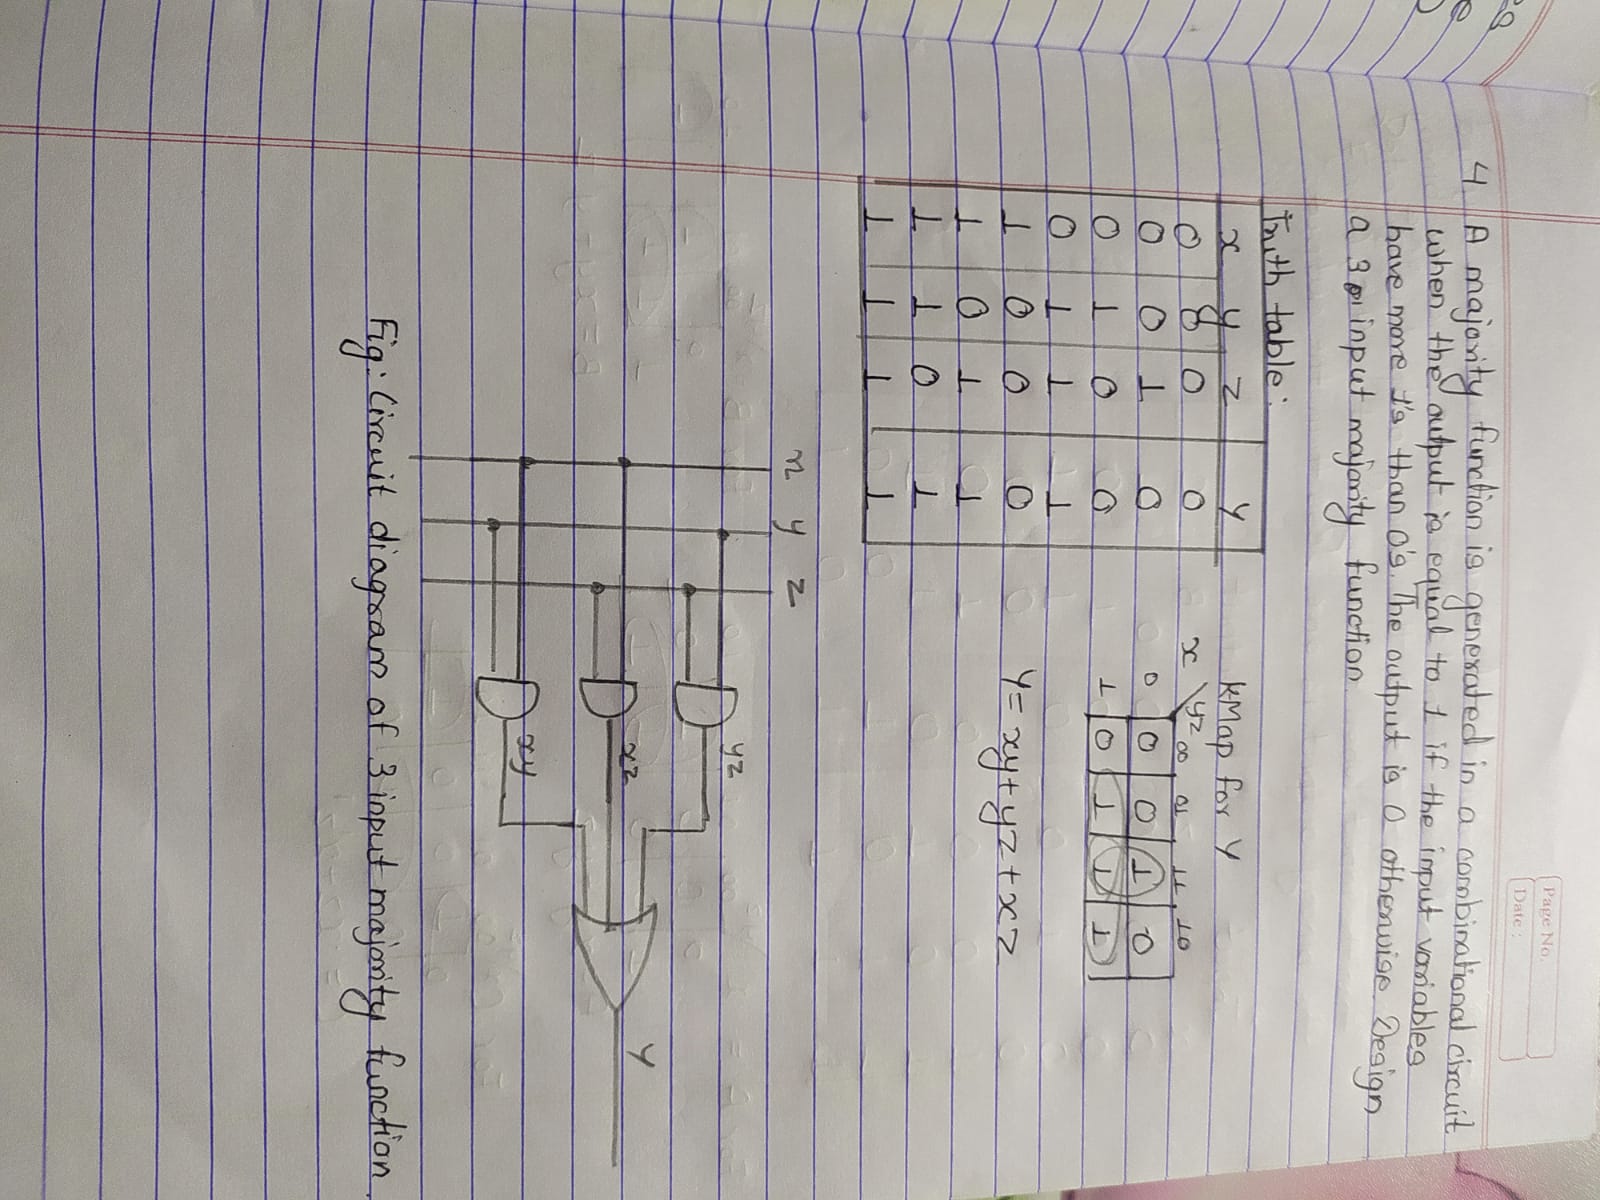 Page No.
Date :
4 A majority function is generated in a combinational circuit
when the output is equal to 1 if the input variables
have more 1's than 0's. The output is 0 otherwise. Design
a 3 input majority function.
Truth table:
x y z Y
0 0 0 0
0 0 1 0
0 1 0 0
0 1 1 1
1 0 0 0
1 0 1 1
1 1 0 1
1 1 1 1
kMap for Y
x \ yz 00 01 11 10
0 0 0 1 0
1 0 1 1 1
Y = xy + yz + xz
x y z
yz
xz
xy
Y
Fig: Circuit diagram of 3 input majority function.